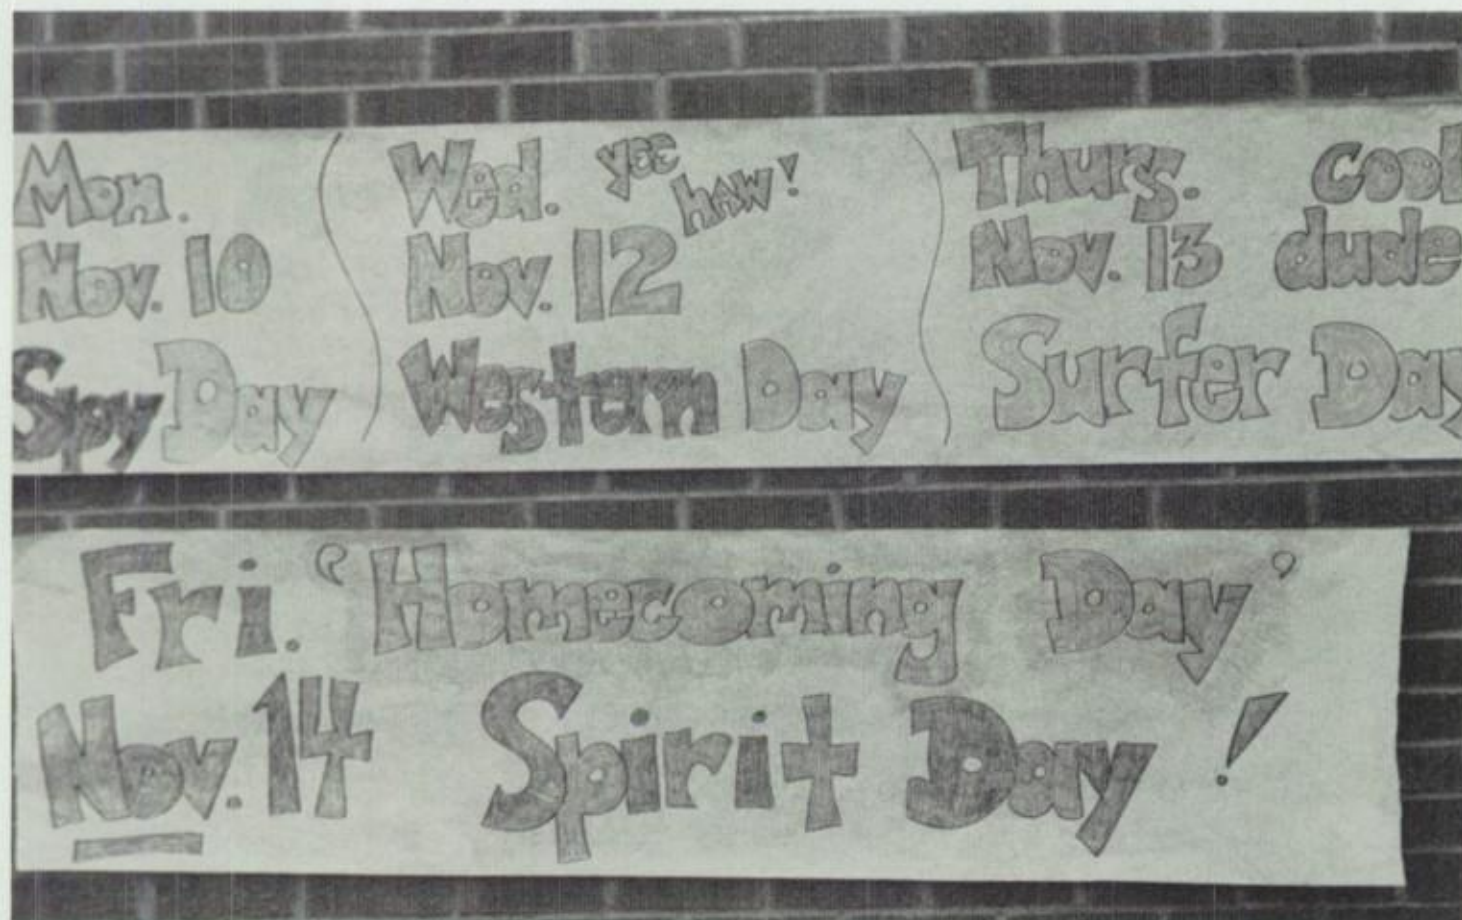 Mon.
Nov. 10
Spy Day
Wed. yee haw!
Nov. 12
Western Day
Thurs. cool
Nov. 13 dude
Surfer Day
Fri. 'Homecoming Day'
Nov. 14 Spirit Day!